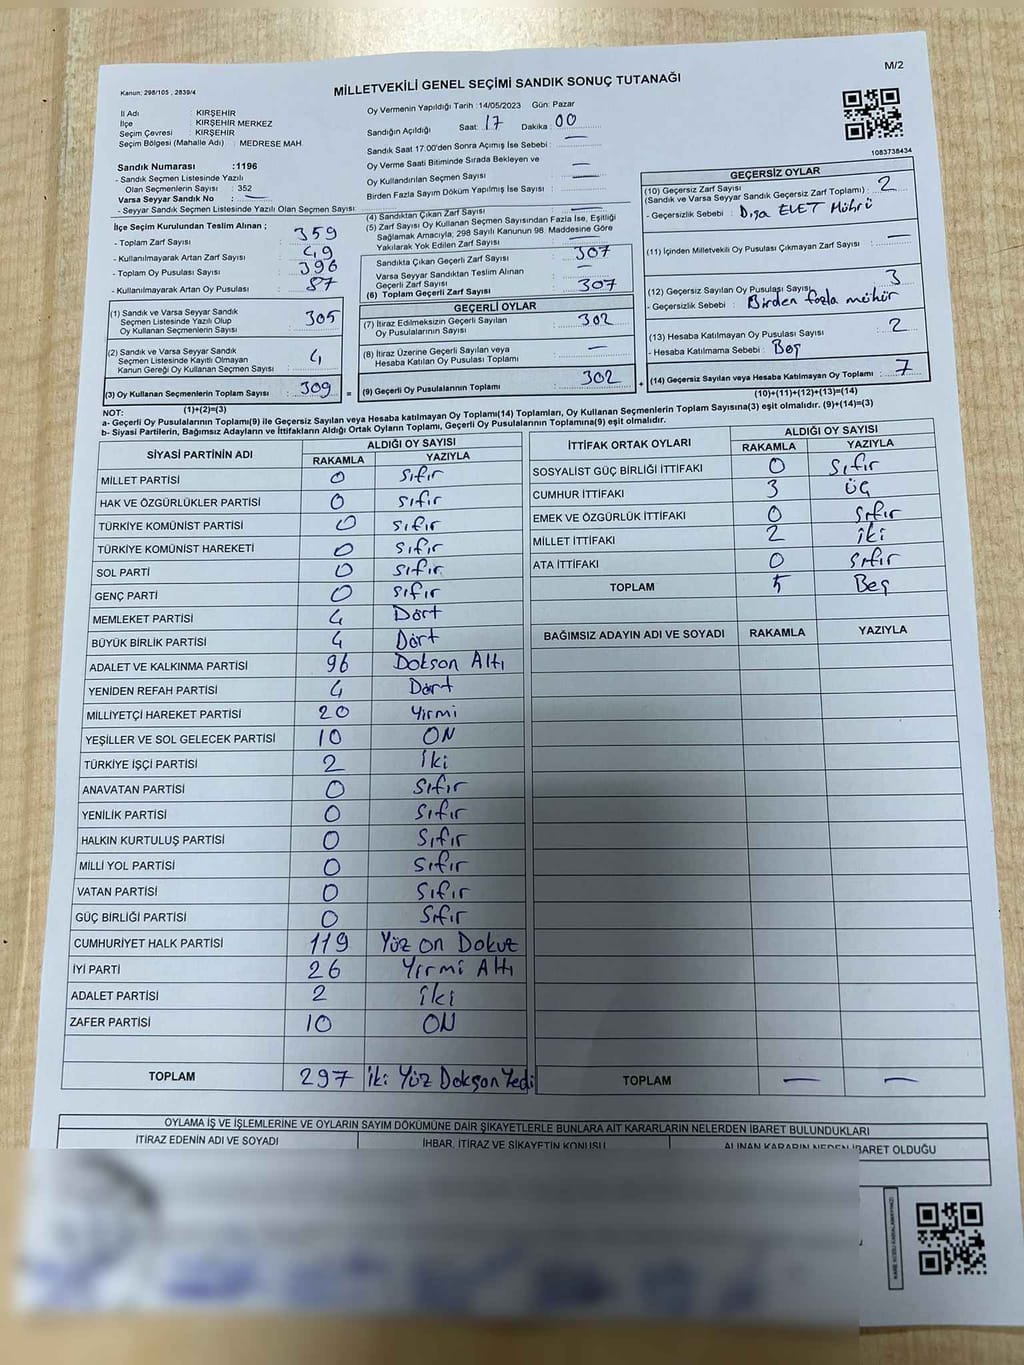 M/2
Kanun; 298/105 , 2839/4
MİLLETVEKİLİ GENEL SEÇİMİ SANDIK SONUÇ TUTANAĞI
İl Adı : KIRŞEHİR
İlçe : KIRŞEHİR MERKEZ
Seçim Çevresi : KIRŞEHİR
Seçim Bölgesi (Mahalle Adı) : MEDRESE MAH.
Sandık Numarası :1196
- Sandık Seçmen Listesinde Yazılı
Olan Seçmenlerin Sayısı : 352
Varsa Seyyar Sandık No : —
- Seyyar Sandık Seçmen Listesinde Yazılı Olan Seçmen Sayısı:
Oy Vermenin Yapıldığı Tarih :14/05/2023 Gün: Pazar
Sandığın Açıldığı Saat: 17 Dakika : 00
Sandık Saat 17:00'den Sonra Açımış İse Sebebi : —
Oy Verme Saati Bitiminde Sırada Bekleyen ve
Oy Kullandırılan Seçmen Sayısı : —
Birden Fazla Sayım Döküm Yapılmış İse Sayısı :
1083738434
İlçe Seçim Kurulundan Teslim Alınan ;
- Toplam Zarf Sayısı : 359
- Kullanılmayarak Artan Zarf Sayısı : 49
- Toplam Oy Pusulası Sayısı : 396
- Kullanılmayarak Artan Oy Pusulası : 87
(1) Sandık ve Varsa Seyyar Sandık
Seçmen Listesinde Yazılı Olup
Oy Kullanan Seçmenlerin Sayısı : 305
(2) Sandık ve Varsa Seyyar Sandık
Seçmen Listesinde Kayıtlı Olmayan
Kanun Gereği Oy Kullanan Seçmen Sayısı : 4
(3) Oy Kullanan Seçmenlerin Toplam Sayısı : 309
(1)+(2)=(3)
(4) Sandıktan Çıkan Zarf Sayısı : —
(5) Zarf Sayısı Oy Kullanan Seçmen Sayısından Fazla İse, Eşitliği
Sağlamak Amacıyla; 298 Sayılı Kanunun 98. Maddesine Göre
Yakılarak Yok Edilen Zarf Sayısı : —
Sandıkta Çıkan Geçerli Zarf Sayısı : 307
Varsa Seyyar Sandıktan Teslim Alınan
Geçerli Zarf Sayısı : —
(6) Toplam Geçerli Zarf Sayısı : 307
GEÇERLİ OYLAR
(7) İtiraz Edilmeksizin Geçerli Sayılan
Oy Pusulalarının Sayısı : 302
(8) İtiraz Üzerine Geçerli Sayılan veya
Hesaba Katılan Oy Pusulası Toplamı : —
= (9) Geçerli Oy Pusulalarının Toplamı : 302 +
GEÇERSİZ OYLAR
(10) Geçersiz Zarf Sayısı
(Sandık ve Varsa Seyyar Sandık Geçersiz Zarf Toplamı) : 2
- Geçersizlik Sebebi : Dışa EVET Mührü
(11) İçinden Milletvekili Oy Pusulası Çıkmayan Zarf Sayısı : —
(12) Geçersiz Sayılan Oy Pusulası Sayısı : 3
- Geçersizlik Sebebi : Birden fazla mühür
(13) Hesaba Katılmayan Oy Pusulası Sayısı : 2
- Hesaba Katılmama Sebebi : Boş
(14) Geçersiz Sayılan veya Hesaba Katılmayan Oy Toplamı : 7
(10)+(11)+(12)+(13)=(14)
NOT:
a- Geçerli Oy Pusulalarının Toplamı(9) ile Geçersiz Sayılan veya Hesaba katılmayan Oy Toplamı(14) Toplamları, Oy Kullanan Seçmenlerin Toplam Sayısına(3) eşit olmalıdır. (9)+(14)=(3)
b- Siyasi Partilerin, Bağımsız Adayların ve İttifakların Aldığı Ortak Oyların Toplamı, Geçerli Oy Pusulalarının Toplamına(9) eşit olmalıdır.
SİYASİ PARTİNİN ADI ALDIĞI OY SAYISI
RAKAMLA YAZIYLA
MİLLET PARTİSİ 0 sıfır
HAK VE ÖZGÜRLÜKLER PARTİSİ 0 sıfır
TÜRKİYE KOMÜNİST PARTİSİ 0 sıfır
TÜRKİYE KOMÜNİST HAREKETİ 0 sıfır
SOL PARTİ 0 sıfır
GENÇ PARTİ 0 sıfır
MEMLEKET PARTİSİ 4 Dört
BÜYÜK BİRLİK PARTİSİ 4 Dört
ADALET VE KALKINMA PARTİSİ 96 Dokson Altı
YENİDEN REFAH PARTİSİ 4 Dört
MİLLİYETÇİ HAREKET PARTİSİ 20 Yirmi
YEŞİLLER VE SOL GELECEK PARTİSİ 10 ON
TÜRKİYE İŞÇİ PARTİSİ 2 İki
ANAVATAN PARTİSİ 0 Sıfır
YENİLİK PARTİSİ 0 Sıfır
HALKIN KURTULUŞ PARTİSİ 0 Sıfır
MİLLİ YOL PARTİSİ 0 Sıfır
VATAN PARTİSİ 0 Sıfır
GÜÇ BİRLİĞİ PARTİSİ 0 Sıfır
CUMHURİYET HALK PARTİSİ 119 Yüz on Dokuz
İYİ PARTİ 26 Yirmi Altı
ADALET PARTİSİ 2 iki
ZAFER PARTİSİ 10 ON
TOPLAM 297 İki Yüz Dokson Yedi
İTTİFAK ORTAK OYLARI ALDIĞI OY SAYISI
RAKAMLA YAZIYLA
SOSYALİST GÜÇ BİRLİĞİ İTTİFAKI 0 Sıfır
CUMHUR İTTİFAKI 3 üç
EMEK VE ÖZGÜRLÜK İTTİFAKI 0 Sıfır
MİLLET İTTİFAKI 2 iki
ATA İTTİFAKI 0 sıfır
TOPLAM 5 Beş
BAĞIMSIZ ADAYIN ADI VE SOYADI RAKAMLA YAZIYLA
TOPLAM — —
OYLAMA İŞ VE İŞLEMLERİNE VE OYLARIN SAYIM DÖKÜMÜNE DAİR ŞİKAYETLERLE BUNLARA AİT KARARLARIN NELERDEN İBARET BULUNDUKLARI
İTİRAZ EDENİN ADI VE SOYADI İHBAR, İTİRAZ VE ŞİKAYETİN KONUSU ALINAN KARARIN NEDEN İBARET OLDUĞU